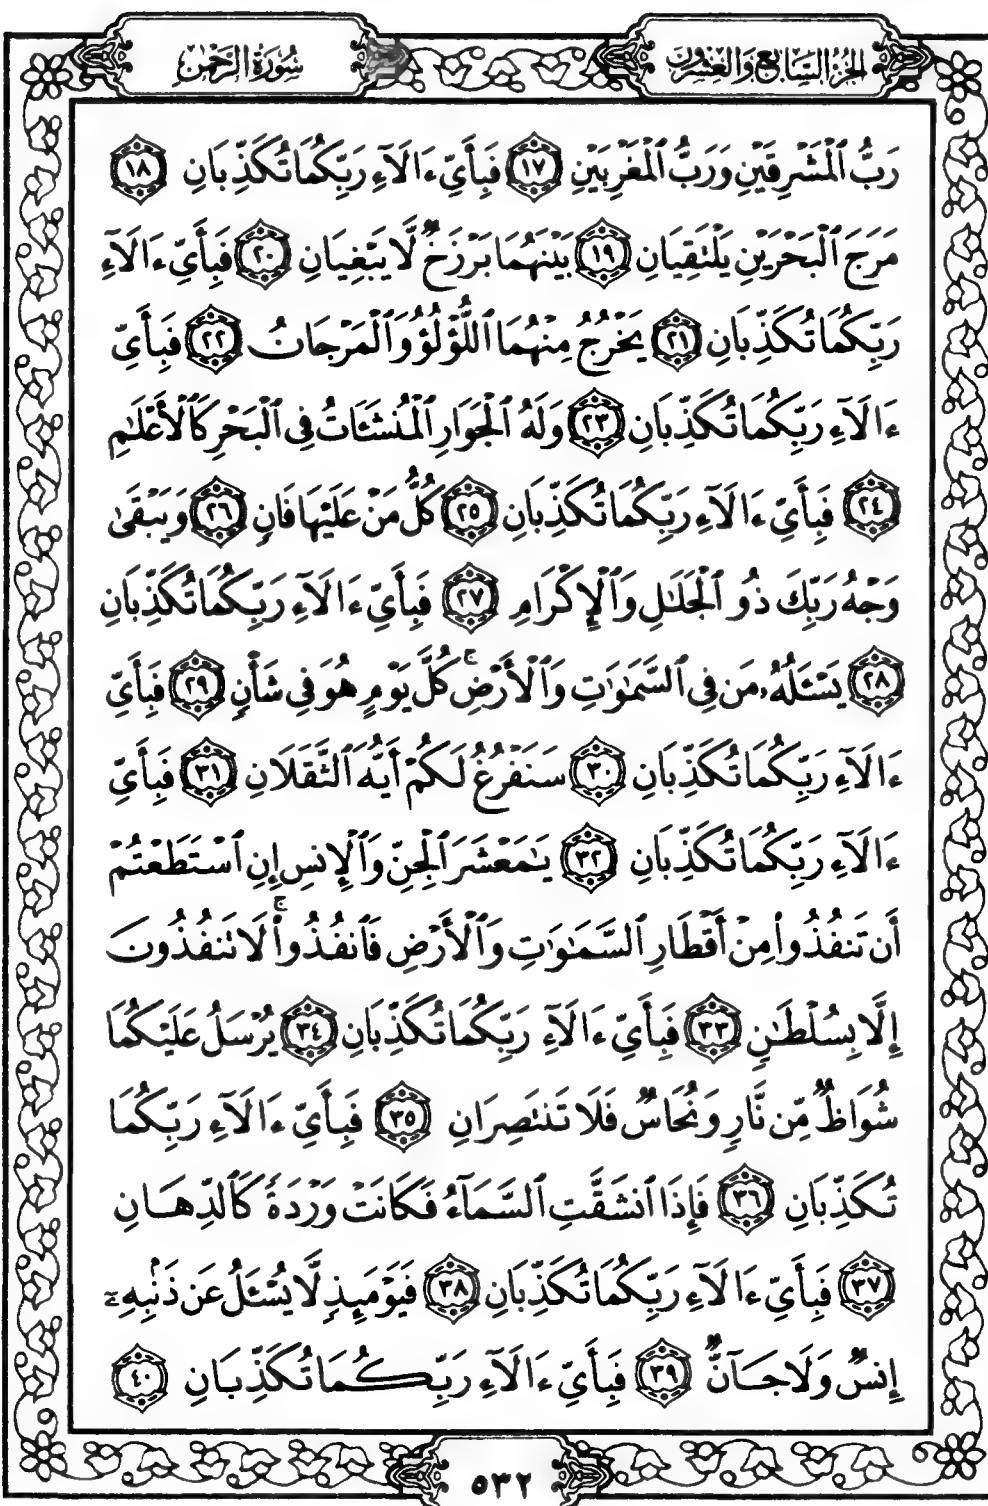 الجزء السابع والعشرون
سورة الرحمن
رَبُّ ٱلْمَشْرِقَيْنِ وَرَبُّ ٱلْمَغْرِبَيْنِ ١٧ فَبِأَىِّ ءَالَآءِ رَبِّكُمَا تُكَذِّبَانِ ١٨
مَرَجَ ٱلْبَحْرَيْنِ يَلْتَقِيَانِ ١٩ بَيْنَهُمَا بَرْزَخٌ لَّا يَبْغِيَانِ ٢٠ فَبِأَىِّ ءَالَآءِ
رَبِّكُمَا تُكَذِّبَانِ ٢١ يَخْرُجُ مِنْهُمَا ٱللُّؤْلُؤُ وَٱلْمَرْجَانُ ٢٢ فَبِأَىِّ
ءَالَآءِ رَبِّكُمَا تُكَذِّبَانِ ٢٣ وَلَهُ ٱلْجَوَارِ ٱلْمُنشَـَٔاتُ فِى ٱلْبَحْرِ كَٱلْأَعْلَـٰمِ
٢٤ فَبِأَىِّ ءَالَآءِ رَبِّكُمَا تُكَذِّبَانِ ٢٥ كُلُّ مَنْ عَلَيْهَا فَانٍ ٢٦ وَيَبْقَىٰ
وَجْهُ رَبِّكَ ذُو ٱلْجَلَـٰلِ وَٱلْإِكْرَامِ ٢٧ فَبِأَىِّ ءَالَآءِ رَبِّكُمَا تُكَذِّبَانِ
٢٨ يَسْـَٔلُهُۥ مَن فِى ٱلسَّمَـٰوَٰتِ وَٱلْأَرْضِ ۚ كُلَّ يَوْمٍ هُوَ فِى شَأْنٍ ٢٩ فَبِأَىِّ
ءَالَآءِ رَبِّكُمَا تُكَذِّبَانِ ٣٠ سَنَفْرُغُ لَكُمْ أَيُّهَ ٱلثَّقَلَانِ ٣١ فَبِأَىِّ
ءَالَآءِ رَبِّكُمَا تُكَذِّبَانِ ٣٢ يَـٰمَعْشَرَ ٱلْجِنِّ وَٱلْإِنسِ إِنِ ٱسْتَطَعْتُمْ
أَن تَنفُذُوا۟ مِنْ أَقْطَارِ ٱلسَّمَـٰوَٰتِ وَٱلْأَرْضِ فَٱنفُذُوا۟ ۚ لَا تَنفُذُونَ
إِلَّا بِسُلْطَـٰنٍ ٣٣ فَبِأَىِّ ءَالَآءِ رَبِّكُمَا تُكَذِّبَانِ ٣٤ يُرْسَلُ عَلَيْكُمَا
شُوَاظٌ مِّن نَّارٍ وَنُحَاسٌ فَلَا تَنتَصِرَانِ ٣٥ فَبِأَىِّ ءَالَآءِ رَبِّكُمَا
تُكَذِّبَانِ ٣٦ فَإِذَا ٱنشَقَّتِ ٱلسَّمَآءُ فَكَانَتْ وَرْدَةً كَٱلدِّهَانِ
٣٧ فَبِأَىِّ ءَالَآءِ رَبِّكُمَا تُكَذِّبَانِ ٣٨ فَيَوْمَئِذٍ لَّا يُسْـَٔلُ عَن ذَنۢبِهِۦٓ
إِنسٌ وَلَا جَآنٌّ ٣٩ فَبِأَىِّ ءَالَآءِ رَبِّكُمَا تُكَذِّبَانِ ٤٠
٥٣٢